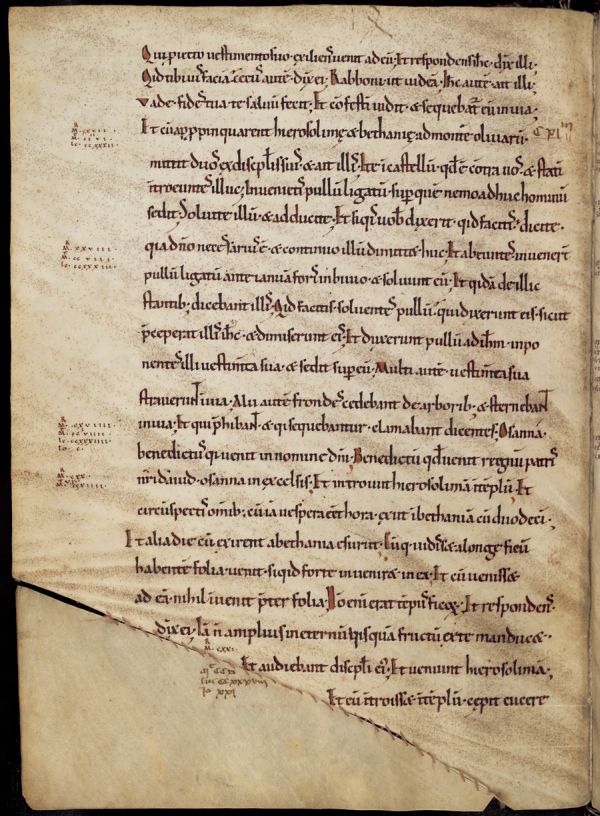 Qui proiecto uestimento suo exiliens uenit ad eū; Et respondens ihc dix illi;
Qid tibi uis faciā; Cecus autē dix ei; Rabboni ut videā; Ihc autē ait illi;
Vade fides tua te saluū fecit; Et cōfestī vidit & sequebat eū in via;
Et cū app̄pinquarent hierosolimę & bethanię ad montē oliuarū
mittit duos ex disciplis suis & ait illis; Ite ī castellū qd ē cōtra uos & statī
ītroeuntes illuc; Inuenietis pullū ligatū super quē nemo adhuc hominū
sedit; Soluite illū & adducite; Et siqis uob dixerit qid facitis dicite
qia dn̄o necessarius ē & continuo illū dimittet huc; Et abeuntes inuenert
pullū ligatū ante ianuā foris in biuio & soluunt eū; Et qidā de illic
stantib; dicebant illis; Qid facitis soluentes pullū; qui dixerunt eis sicut
p̄ceperat illis ihc & dimiserunt eis; Et duxerunt pullū ad ihm inpo
nentes illi uestim̄ta sua & sedit super eū; Multi autē uestim̄ta sua
strauerunt in via; Alii autē frondes cedebant de arborib; & sternebant
in via; Et qui p̄hibant & qi sequebantur clamabant dicentes; Osanna
benedictus qi uenit in nomine dn̄i; Benedictū qd uenit regnū patris
nr̄i dauid osanna in excelsis; Et introiuit hierosolimā ī tēplū; Et
circūspectis omib; cū iā uespera eēt hora exiit ī bethaniā cū duodeci;
Et alia die cū exirent a bethania esurit; Cūq; vidisset a longe ficū
habentē folia uenit siqid forte inueniret in ea; Et cū uenisset
ad eā nihil īuenit p̄ter folia; Nō enī erat tēpus ficoȝ; Et respondens
dix ei; Iā n̄ amplius in eternū qisquā fructū ex te manducet
m̄ cxxi
Et audiebant discipli eius; Et ueniunt hierosolimā;
Et cū ītroisset ī tēplū; cępit eicere